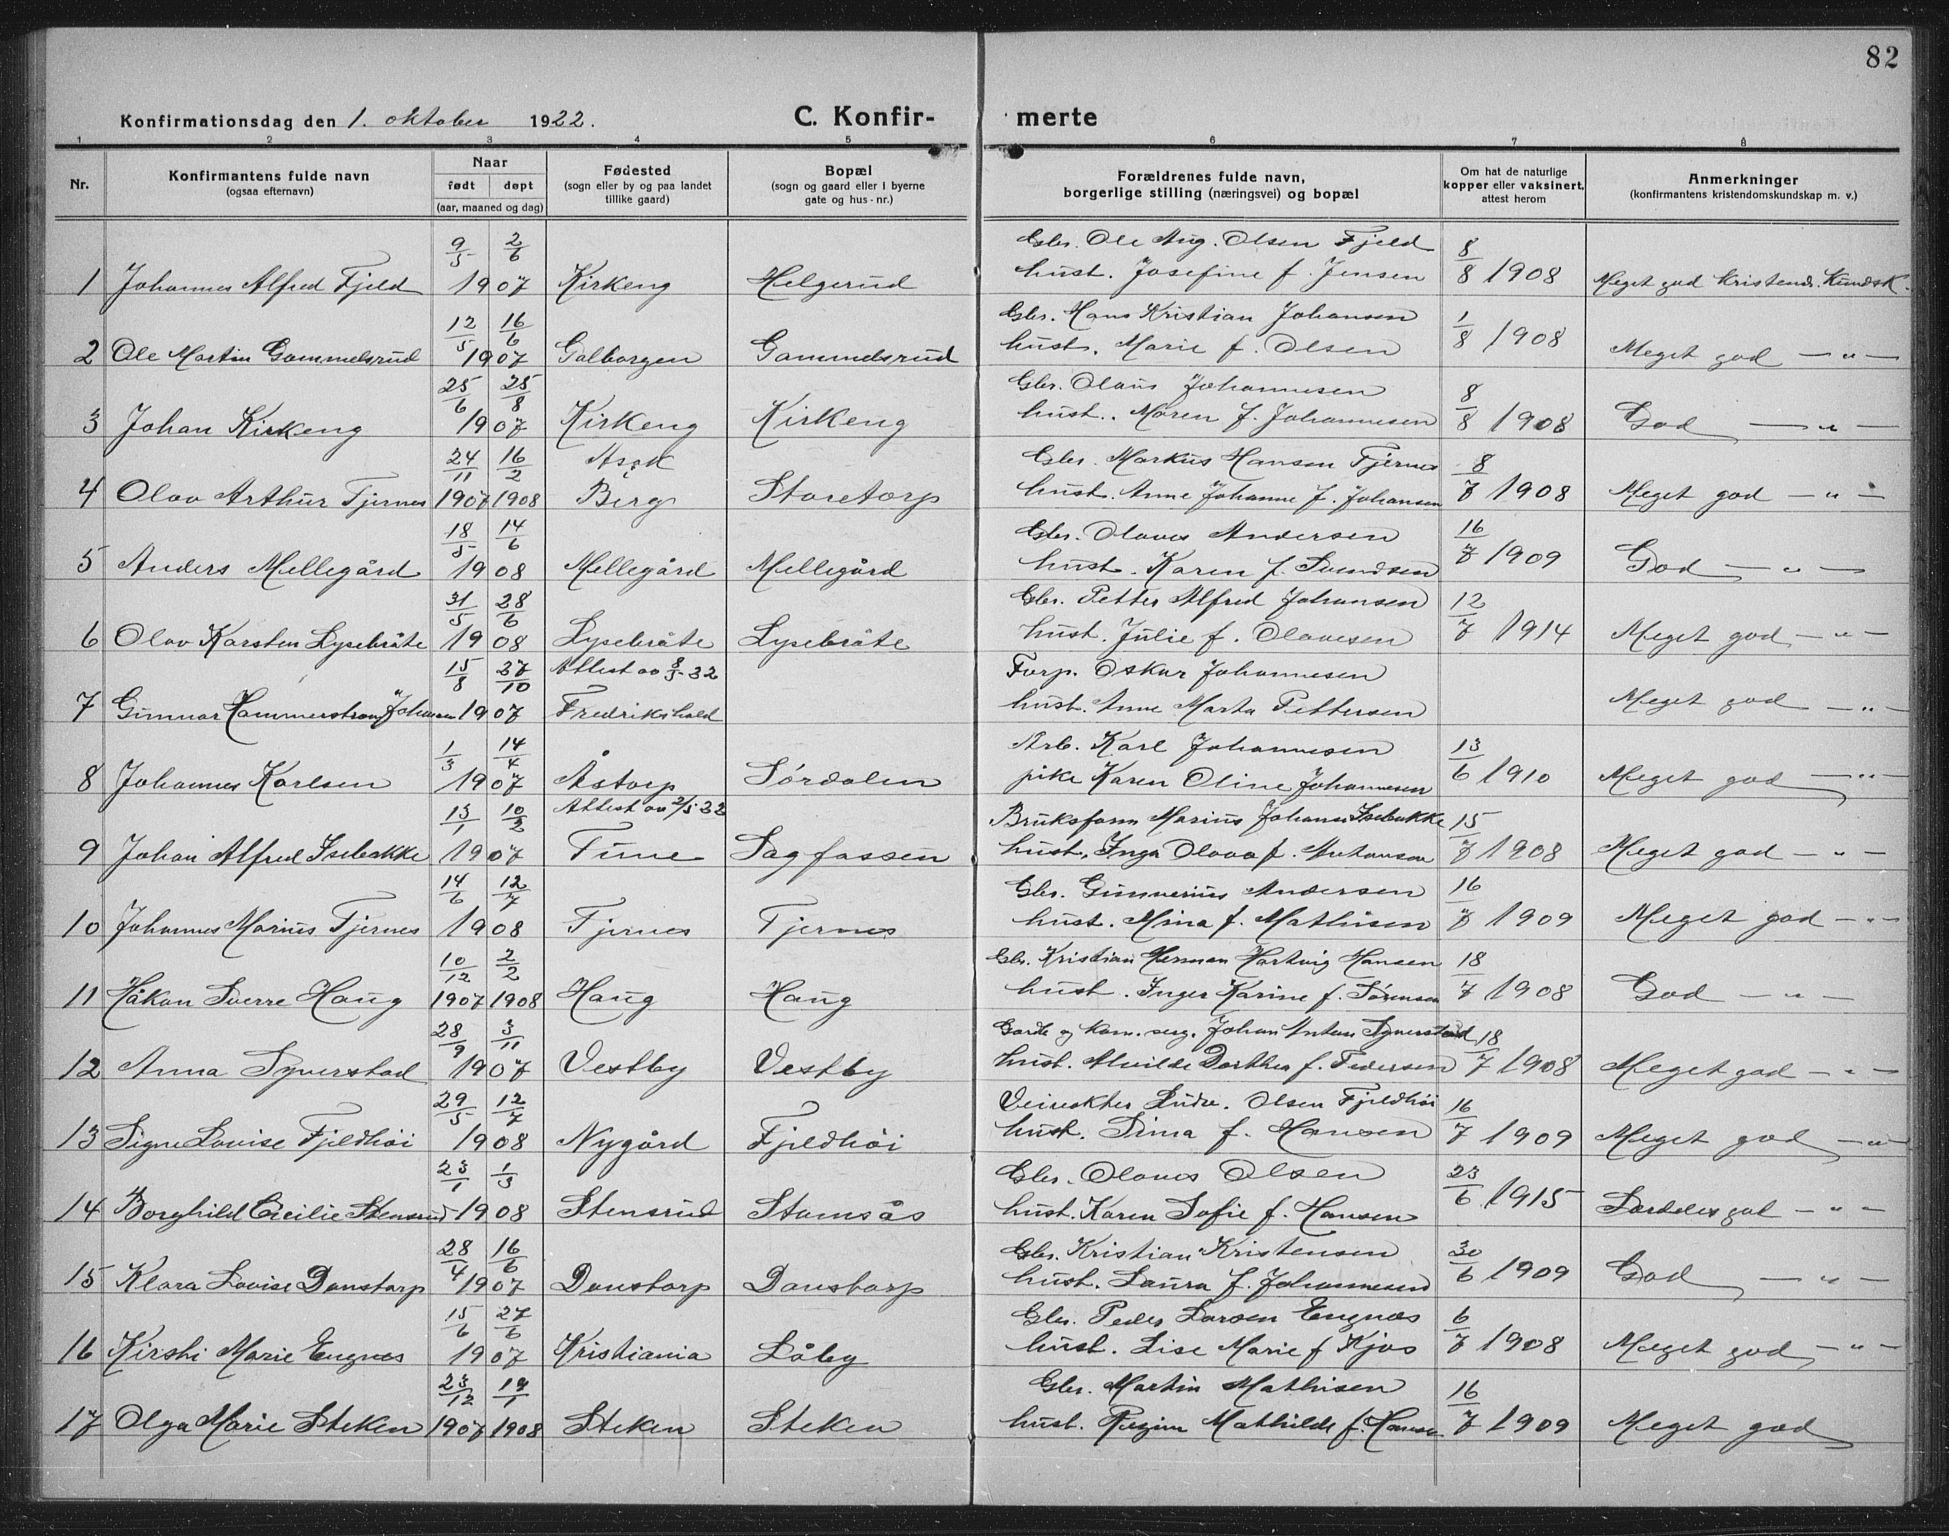 82
Konfirmationsdag den 1. oktober 1922. C. Konfir- merte
1 2 3 4 5 6 7 8
Nr. Konfirmantens fulde navn (ogsaa efternavn) Naar født døpt (aar, maaned og dag) Fødested (sogn eller by og paa landet tillike gaard) Bopæl (sogn og gaard eller i byerne gate og hus-nr.) Forældrenes fulde navn, borgerlige stilling (næringsvei) og bopæl Om hat de naturlige kopper eller vaksinert, attest herom Anmerkninger (konfirmantens kristendomskundskap m. v.)
9/5 2/6 Gbr. Ole Aug. Olsen Fjeld 8/8
1 Johannes Alfred Fjeld 1907 Kirkeng Helgerud hust. Josefine f. Jensen 1908 Meget god Kristends. Kundsk.
12/5 16/6 Gbr. Hans Kristian Johansen 1/8
2 Ole Martin Gammelsrud 1907 Galborgen Gammelsrud hust. Marie f. Olsen 1908 Meget god — " —
25/6 25/8 Gbr. Olaus Johannesen 8/8
3 Johan Kirkeng 1907 Kirkeng Kirkeng hust. Maren f. Johannesen 1908 God — " —
24/11 16/2 Ask Gbr. Markus Hansen Tjernes 8/7
4 Olav Arthur Tjernes 1907 1908 Berg Storetorp hust. Anne Johanne f. Johansen 1908 Meget god — " —
18/5 14/6 Gbr. Olaves Andersen 16/7
5 Anders Mellegård 1908 Mellegård Mellegård hust. Karen f. Svendsen 1909 God — " —
31/5 28/6 Gbr. Petter Alfred Johansen 12/7
6 Olav Karsten Lysebråte 1908 Lysebråte Lysebråte hust. Julie f. Olavesen 1914 Meget god — " —
15/8 27/10 Attest av 8/3-32 Forp. Oskar Johannesen
7 Gunnar Hammerstrøm Johansen 1907 Fredrikshald hust. Anne Marta Pettersen Meget god — " —
1/3 14/4 Arb. Karl Johannesen 13/6
8 Johannes Karlsen 1907 Åstorp Sørdalen pike Karen Oline Johannesen 1910 Meget god — " —
13/1 10/2 Attest av 2/5-32 Bruksform Marius Johans Isebakke 15/7
9 Johan Alfred Isebakke 1907 Fune Sagfossen hust. Inga Olava f. Antonsen 1908 Meget god — " —
14/6 12/7 Gbr. Gunnerius Andersen 16/7
10 Johannes Marius Tjernes 1908 Tjernes Tjernes hust. Mina f. Mathisen 1909 Meget god — " —
10/12 2/2 Gbr. Kristian Herman Hartvig Hansen 18/7
11 Håkon Sverre Haug 1907 1908 Haug Haug hust. Inger Karine f. Sørensen 1908 God — " —
28/9 3/11 Gardb. og kom. serg. Johan Anton Synerstad 18/7
12 Anna Synerstad 1907 Vestby Vestby hust. Alvilde Dorthea f. Pedersen 1908 Meget god — " —
29/5 12/7 Veivokter Ludv. Olsen Fjeldhøi 16/7
13 Signe Lovise Fjeldhøi 1908 Nygård Fjeldhøi hust. Sina f. Hansen 1909 Meget god — " —
23/1 1/3 Gbr. Olaves Olsen 23/6
14 Borghild Cecilie Stensrud 1908 Stensrud Stamsås hust. Karen Sofie f. Hansen 1915 Særdeles god — " —
28/4 16/6 Gbr. Kristian Kristensen 30/6
15 Klara Lovise Danstorp 1907 Danstorp Danstorp hust. Laura f. Johannesen 1909 God — " —
15/6 27/6 Gbr. Peder Larsen Engnæs 6/7
16 Kirsti Marie Engnæs 1907 Kristiania Låby hust. Lise Marie f. Kjos 1908 Meget god — " —
23/12 19/1 Gbr. Martin Mathisen 16/7
17 Olga Marie Steken 1907 1908 Steken Steken hust. Regine Mathilde f. Hansen 1909 Meget god